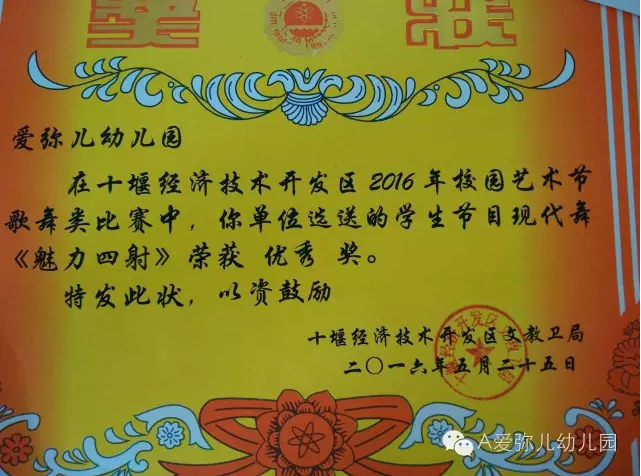 奖 状
爱弥儿幼儿园
在十堰经济技术开发区2016年校园艺术节
歌舞类比赛中，你单位选送的学生节目现代舞
《魅力四射》荣获 优秀 奖。
特发此状，以资鼓励
十堰经济技术开发区文教卫局
二〇一六年五月二十五日
A爱弥儿幼儿园